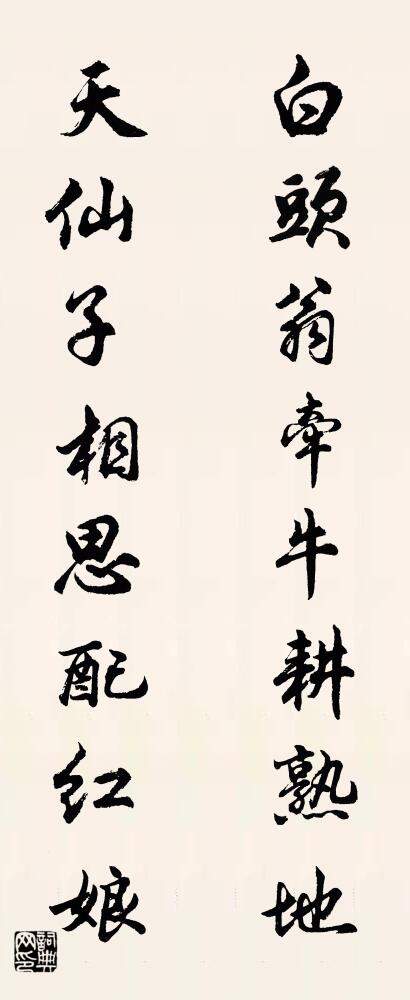 白頭翁牽牛耕熟地
天仙子相思配红娘
詞典网印